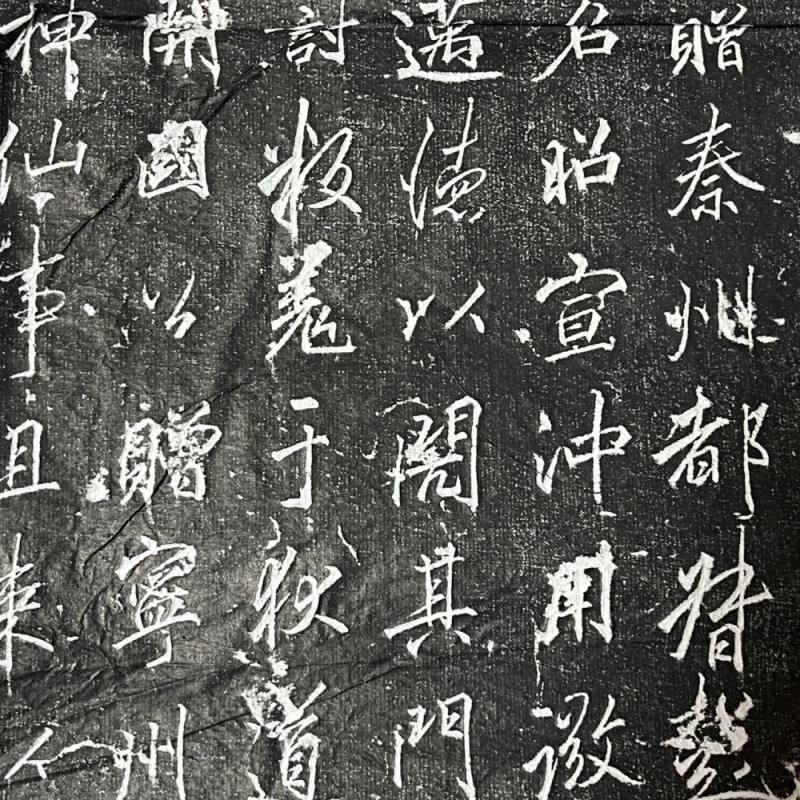 贈秦州都督懿
名昭宣沖用微
邁德以闡其門
討叛羌于狄道
開國公贈寧州
神仙事且未